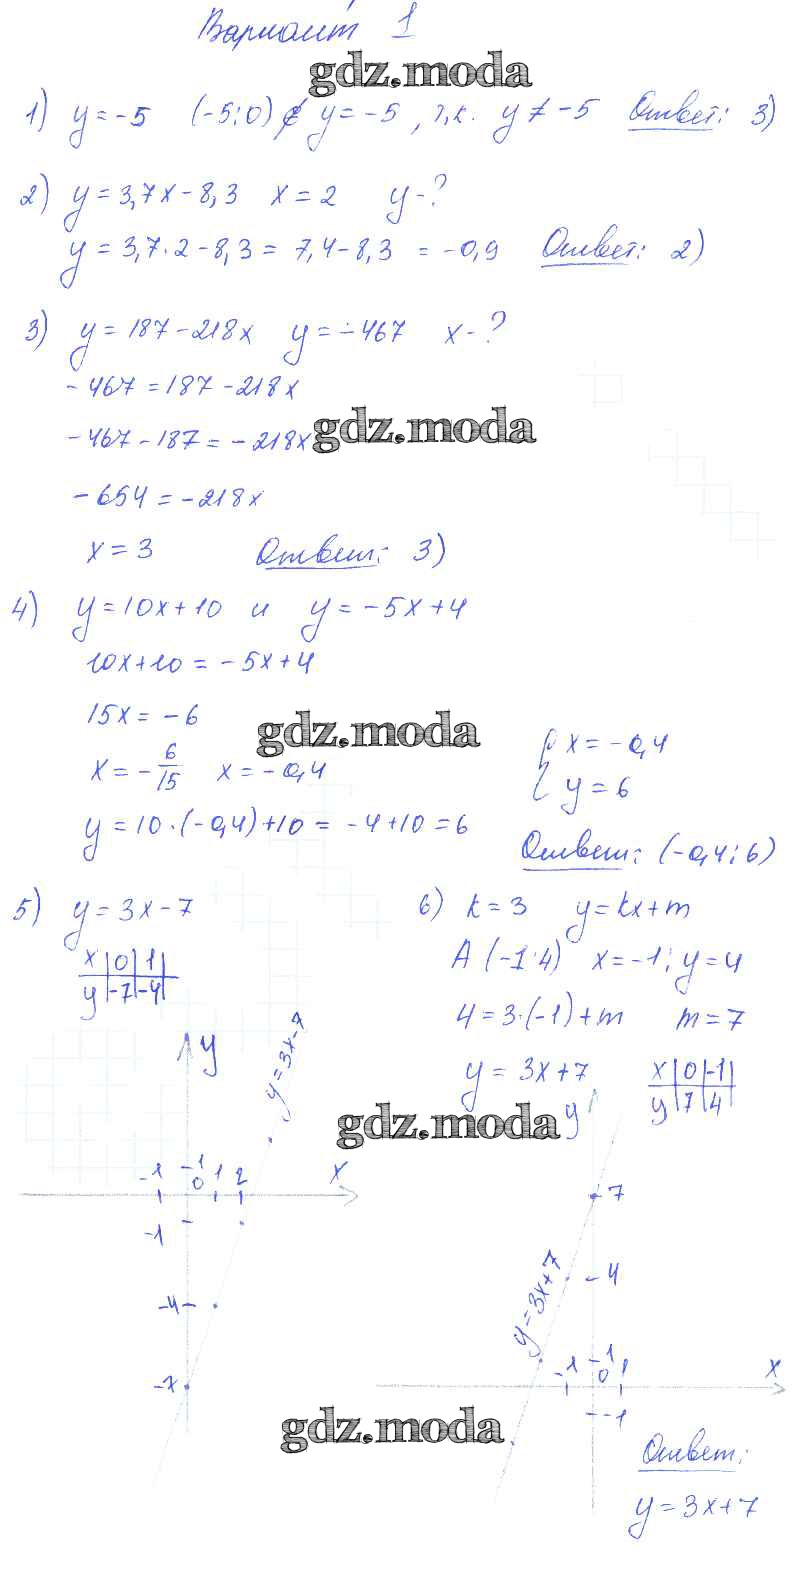 Вариант 1
gdz.moda
1) y = -5 (-5; 0) ∉ y = -5, т.к. y ≠ -5 Ответ: 3)
2) y = 3,7x - 8,3 x = 2 y - ?
y = 3,7·2 - 8,3 = 7,4 - 8,3 = -0,9 Ответ: 2)
3) y = 187 - 218x y = -467 x - ?
-467 = 187 - 218x
-467 - 187 = -218x
gdz.moda
-654 = -218x
x = 3 Ответ: 3)
4) y = 10x + 10 и y = -5x + 4
10x + 10 = -5x + 4
15x = -6
gdz.moda
x = -6/15 x = -0,4
{ x = -0,4
y = 6
y = 10·(-0,4) + 10 = -4 + 10 = 6
Ответ: (-0,4; 6)
5) y = 3x - 7
x | 0 | 1 |
y | -7 | -4 |
y
y = 3x - 7
-1 1 0 1 2 x
-1
-4
-7
6) k = 3 y = kx + m
A (-1; 4) x = -1; y = 4
4 = 3·(-1) + m m = 7
y = 3x + 7
x | 0 | -1 |
y | 7 | 4 |
gdz.moda
y
7
4
y = 3x + 7
-1 1 0 1 x
-1
gdz.moda
Ответ:
y = 3x + 7